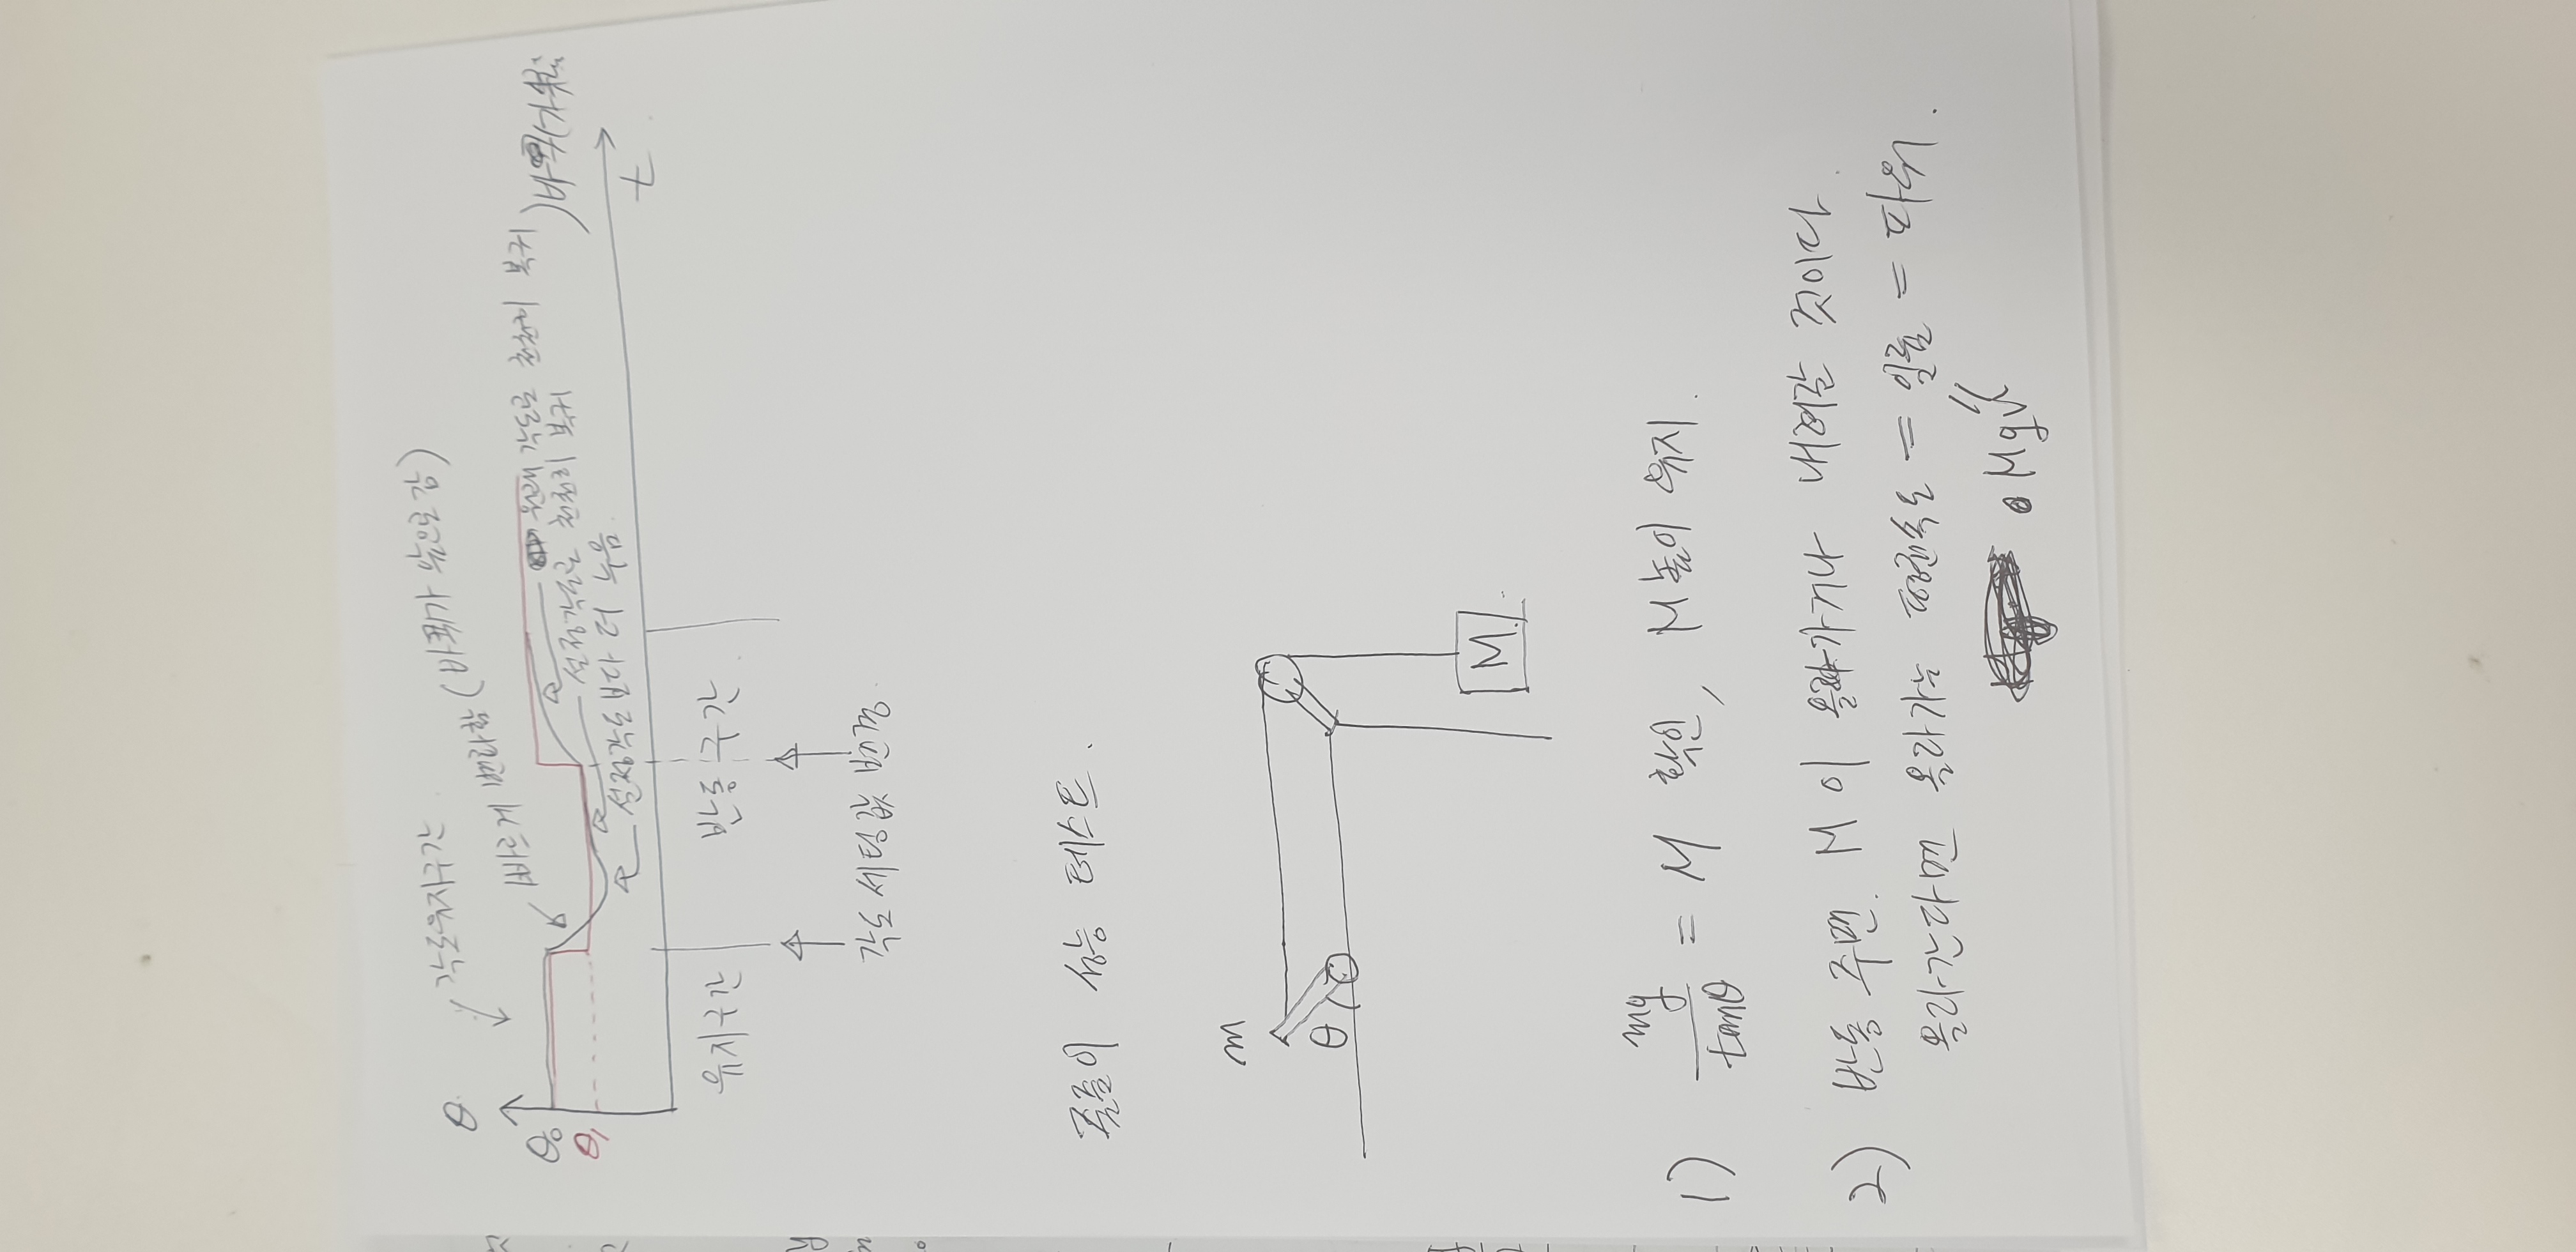 θ
각도유지구간
빠르게 변화함 (바퀴가 앞으로 감)
θ₀
원래 각도로 천천히 복귀
θ₁
설정각도로 천천히 복귀
설정각도보다 더 누움
t
유지구간
반동 구간
각도 세팅값 변경
줄줄이 성능 테스트.
m
θ
M
1) mg/tanθ = M 확인, M 높이 유지.
2) 반동 주면 M이 올라가거나 내려갈 것이다.
올라간다면 올라가는 평균속도 = 일률 = 파워.
Mgv